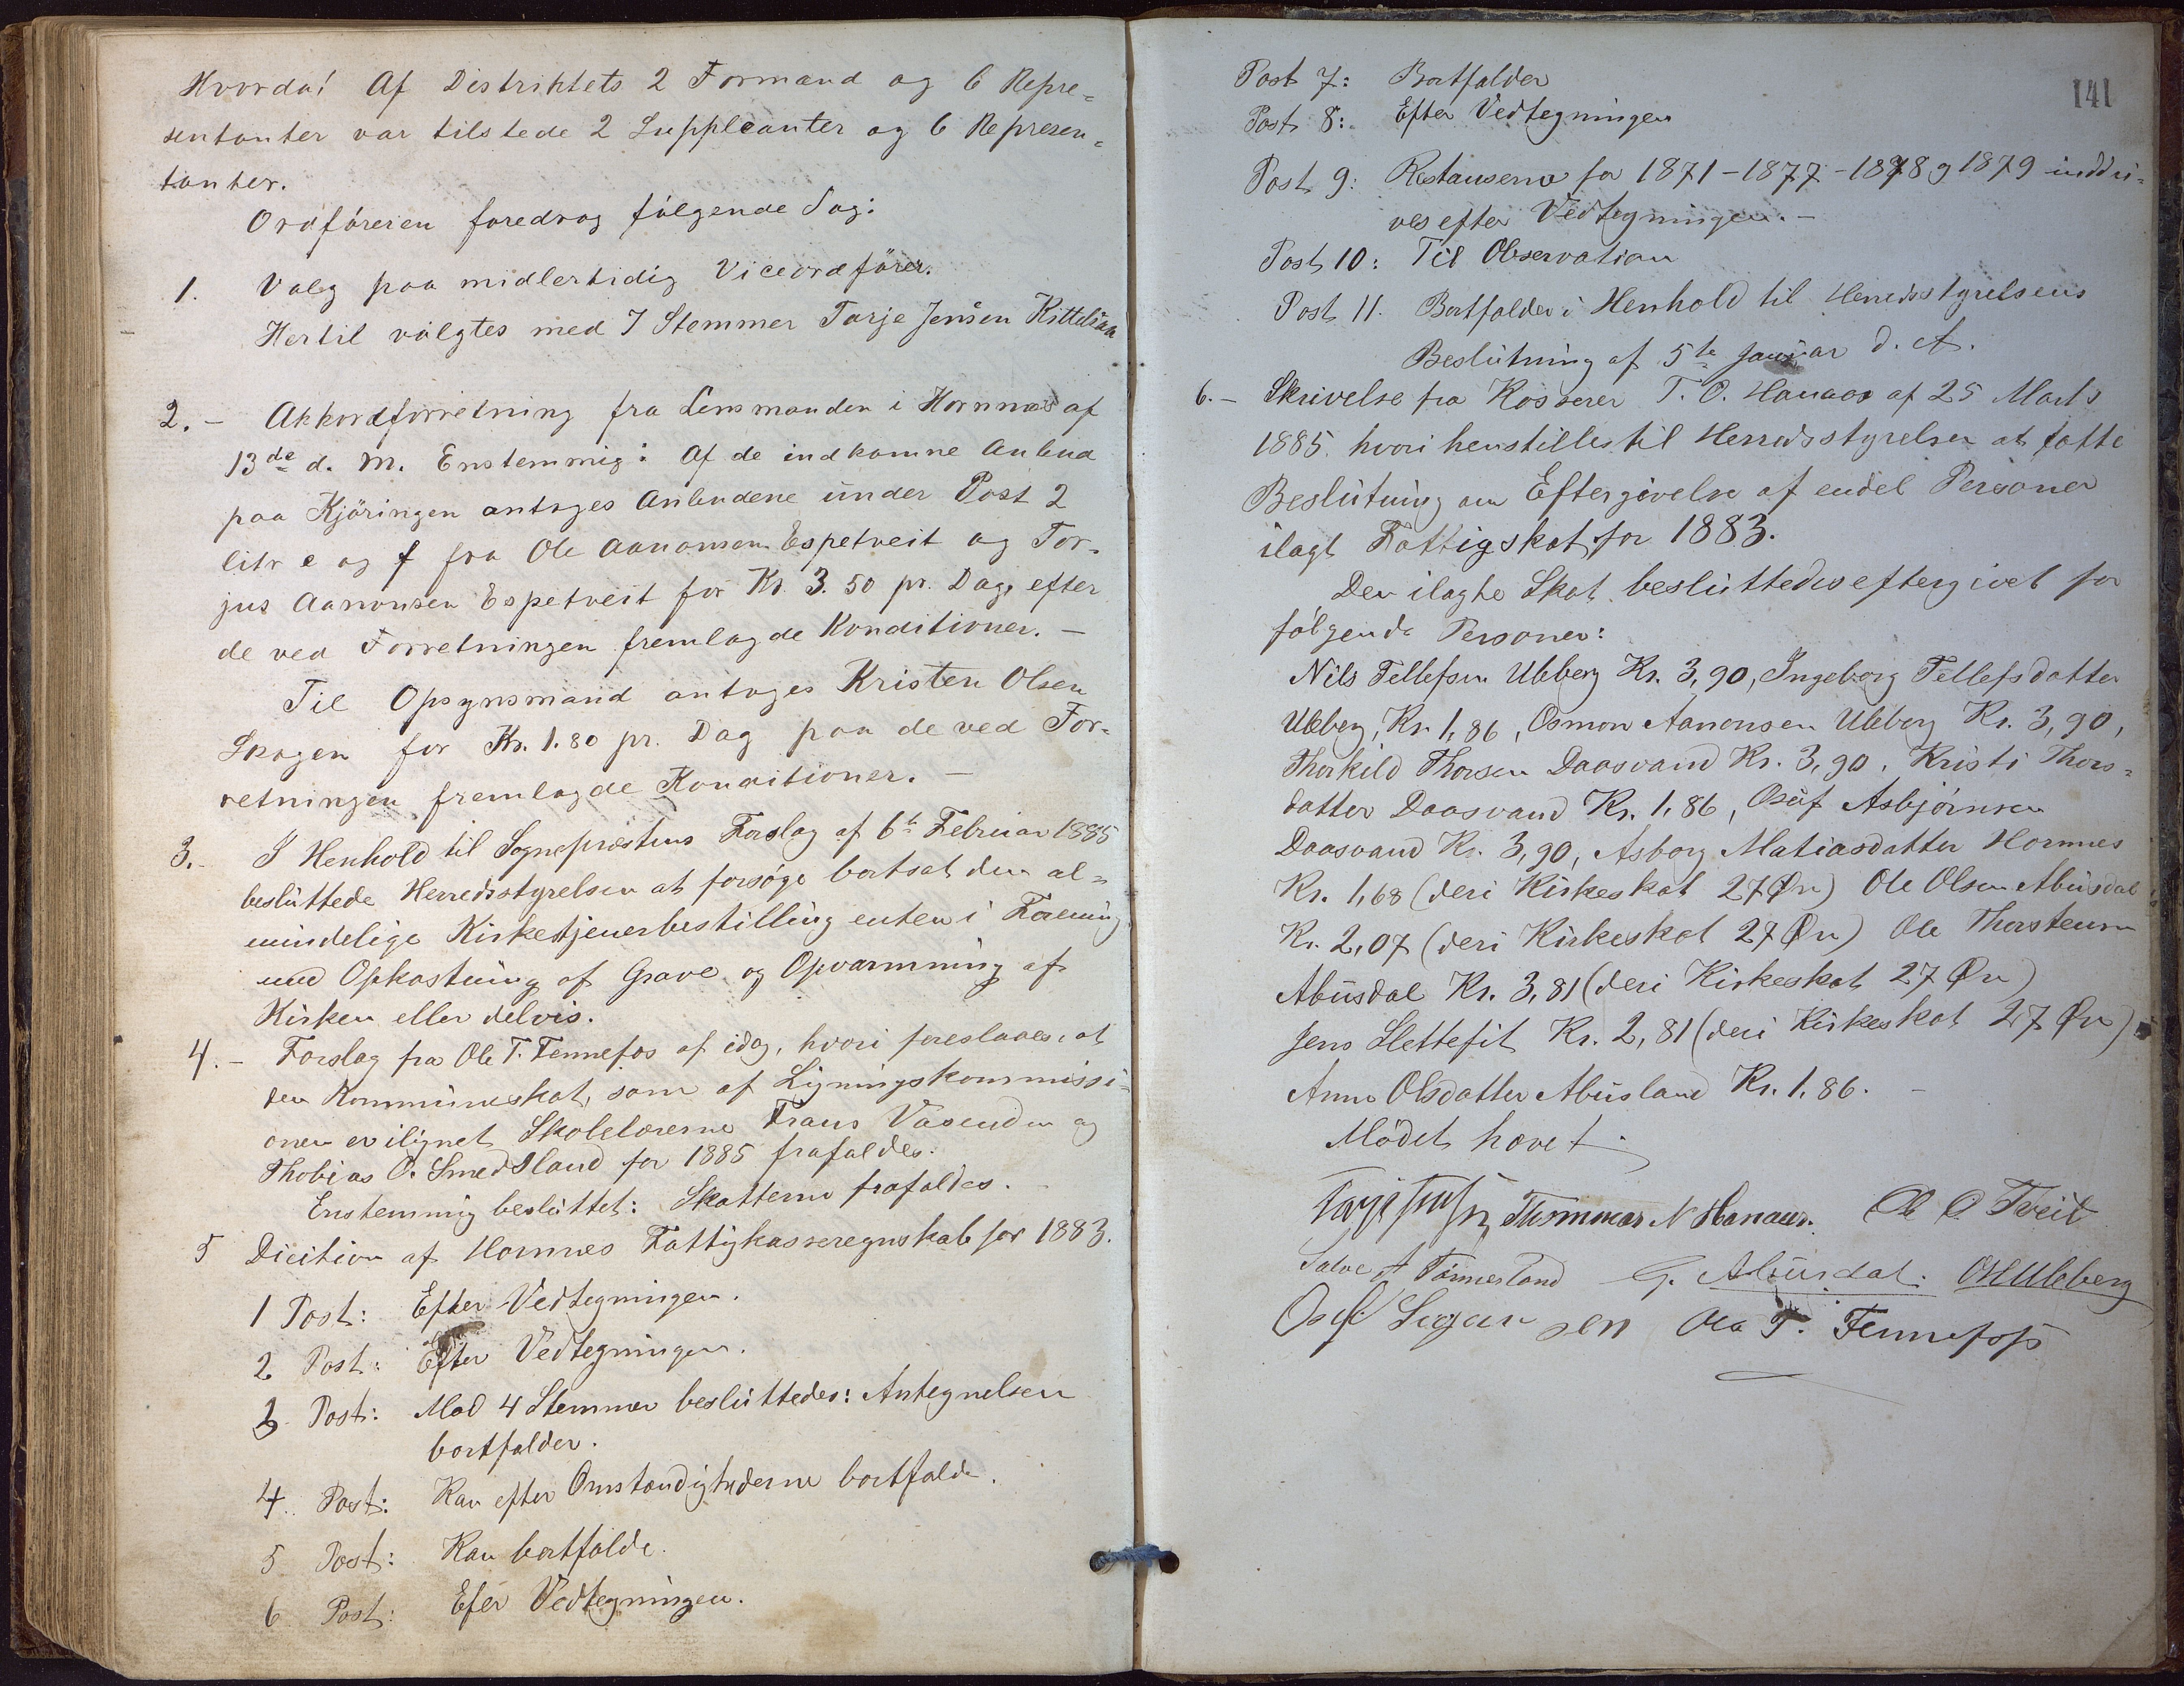 Hvorda! Af Distriktets 2 Formænd og 6 Repre=
sentanter var tilstede 2 Suppleanter og 6 Represen=
tanter.
Ordføreren foredrog følgende Sag:
1. Valg paa midlertidig Viceordfører.
Hertil valgtes med 7 Stemmer Tarje Jensen Kittelsaa
2. - Akkordforretning fra Lensmanden i Hornnæs af
13de d. M. Enstemmig: Af de indkomne Anbud
paa Kjøringen antages Anbudene under Post 2
litr e og f fra Ole Aanonsen Espetveit og Tor=
jus Aanonsen Espetveit for Kr. 3.50 pr. Dag, efter
de ved Forretningen fremlagde Konditioner. -
Til Opsynsmand antages Kristen Olsen
Skogen for Kr. 1.80 pr. Dag paa de ved For=
retningen fremlagde Konditioner. -
3. - I Henhold til Sognepræstens Forslag af 6te Februar 1885
besluttede Herredsstyrelsen at forsøge bortsat den al=
mindelige Kirketjenerbestilling enten i Forening
med Opkastning af Grave og Opvarmning af
Kirken eller delvis.
4. - Forslag fra Ole T. Fennefos af idag, hvori foreslaaes, at
den Kommuneskat, som af Ligningskommissi=
onen er ilignet Skolelærerne Frans Vasenden og
Thobias O. Smedsland for 1885 frafaldes.
Enstemmig besluttet: Skatterne frafaldes.
5 Dicition af Hornnes Fattigkasseregnskab for 1883.
1 Post: Efter Vedtegningen.
2 Post: Efter Vedtegningen.
3 Post: Mod 4 Stemmer besluttedes: Antegnelsen
bortfalder.
4. Post: Kan efter Omstændighederne bortfalde.
5 Post: Kan bortfalde.
6 Post: Efer Vedtegningen.
141
Post 7: Bortfalder
Post 8: Efter Vedtegningen
Post 9: Restanserne for 1871-1877-1878 g 1879 inddri=
ves efter Vedtegningen. -
Post 10: Til Observation
Post 11. Bortfalder i Henhold til Herredsstyrelsens
Beslutning af 5te Januar d. A.
6. - Skrivelse fra Kasserer T. O. Hanaas af 25 Marts
1885 hvori henstilles til Herredsstyrelsen at fatte
Beslutning om Eftergivelse af endel Personer
ilagt Fattigskat for 1883.
Den ilagte Skat besluttedes eftergivet for
følgende Personer:
Nils Tellefsen Uleberg Kr. 3,90, Ingeborg Tellefsdatter
Uleberg, Kr. 1,86, Osmon Aanonsen Uleberg Kr. 3,90,
Thorkild Thorsen Daasvand Kr. 3,90, Kristi Thors=
datter Daasvand Kr. 1,86, Osuf Asbjørnsen
Daasvand Kr. 3,90, Asborg Matiasdatter Hornnes
Kr. 1,68 (deri Kirkeskat 27 Øre) Ole Olsen Abusdal
Kr. 2,07 (deri Kirkeskat 27 Øre) Ole Thorstensen
Abusdal Kr. 3,81 (deri Kirkeskat 27 Øre)
Jens Slettefit Kr. 2,81 (deri Kirkeskat 27 Øre)
Anne Olsdatter Abusland Kr. 1,86. -
Mødet hævet.
Thommas N Hanaas. Ole O. Tveit
Salve A Tønnesland G. Abusdal. O H Uleberg
Osuf Segursen Ole T. Fennefoss